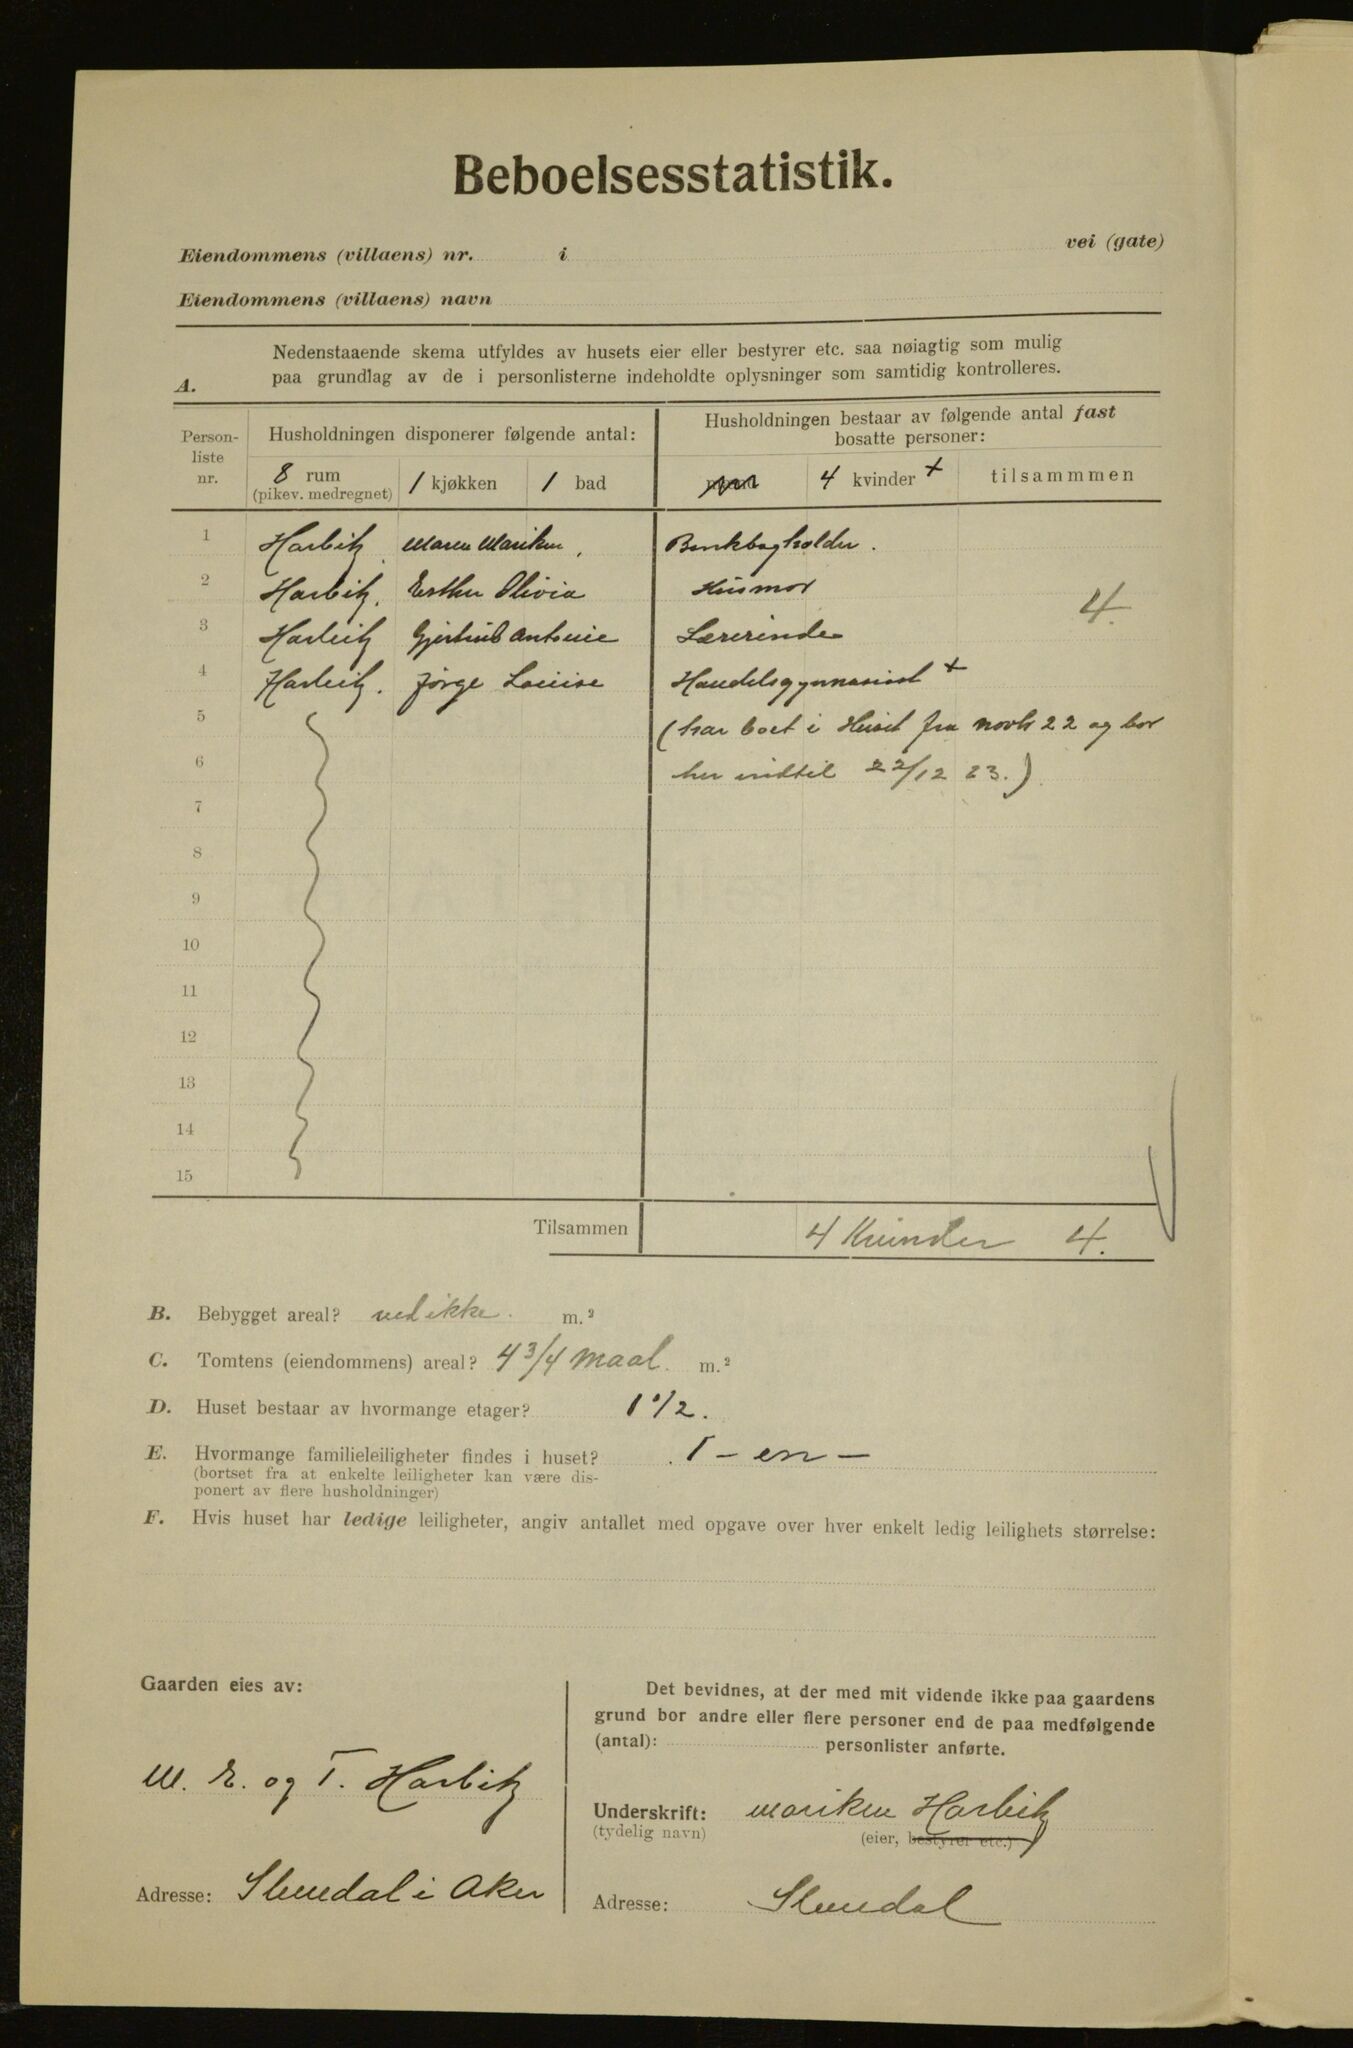 Beboelsesstatistik.
Eiendommens (villaens) nr. i vei (gate)
Eiendommens (villaens) navn
A. Nedenstaaende skema utfyldes av husets eier eller bestyrer etc. saa nøiagtig som mulig
paa grundlag av de i personlisterne indeholdte oplysninger som samtidig kontrolleres.
Person-
liste
nr.
Husholdningen disponerer følgende antal:
8 rum
(pikev. medregnet)
1 kjøkken
1 bad
Husholdningen bestaar av følgende antal fast
bosatte personer:
4 kvinder +
tilsammmen
1 Harbitz, Maren Mariken, Bankbogholder.
2 Harbitz, Esther Olivia Husmor
4.
3 Harbitz Gjertrud Antonie Lærerinde
4 Harbitz. Jørge Louise Handelsgymnasist +
5 (har boet i Huset fra novbr 22 og bor
6 her indtil 22/12 23.)
7
8
9
10
11
12
13
14
15
Tilsammen 4 Kvinder 4.
B. Bebygget areal? ved ikke. m.²
C. Tomtens (eiendommens) areal? 4 3/4 maal. m.²
D. Huset bestaar av hvormange etager? 1 1/2.
E. Hvormange familieleiligheter findes i huset? 1 - en -
(bortset fra at enkelte leiligheter kan være dis-
ponert av flere husholdninger)
F. Hvis huset har ledige leiligheter, angiv antallet med opgave over hver enkelt ledig leilighets størrelse:
Gaarden eies av:
M. E. og T. Harbitz
Adresse: Slemdal i Aker
Det bevidnes, at der med mit vidende ikke paa gaardens
grund bor andre eller flere personer end de paa medfølgende
(antal): personlister anførte.
Underskrift: Mariken Harbitz
(tydelig navn) (eier, bestyrer etc.)
Adresse: Slemdal